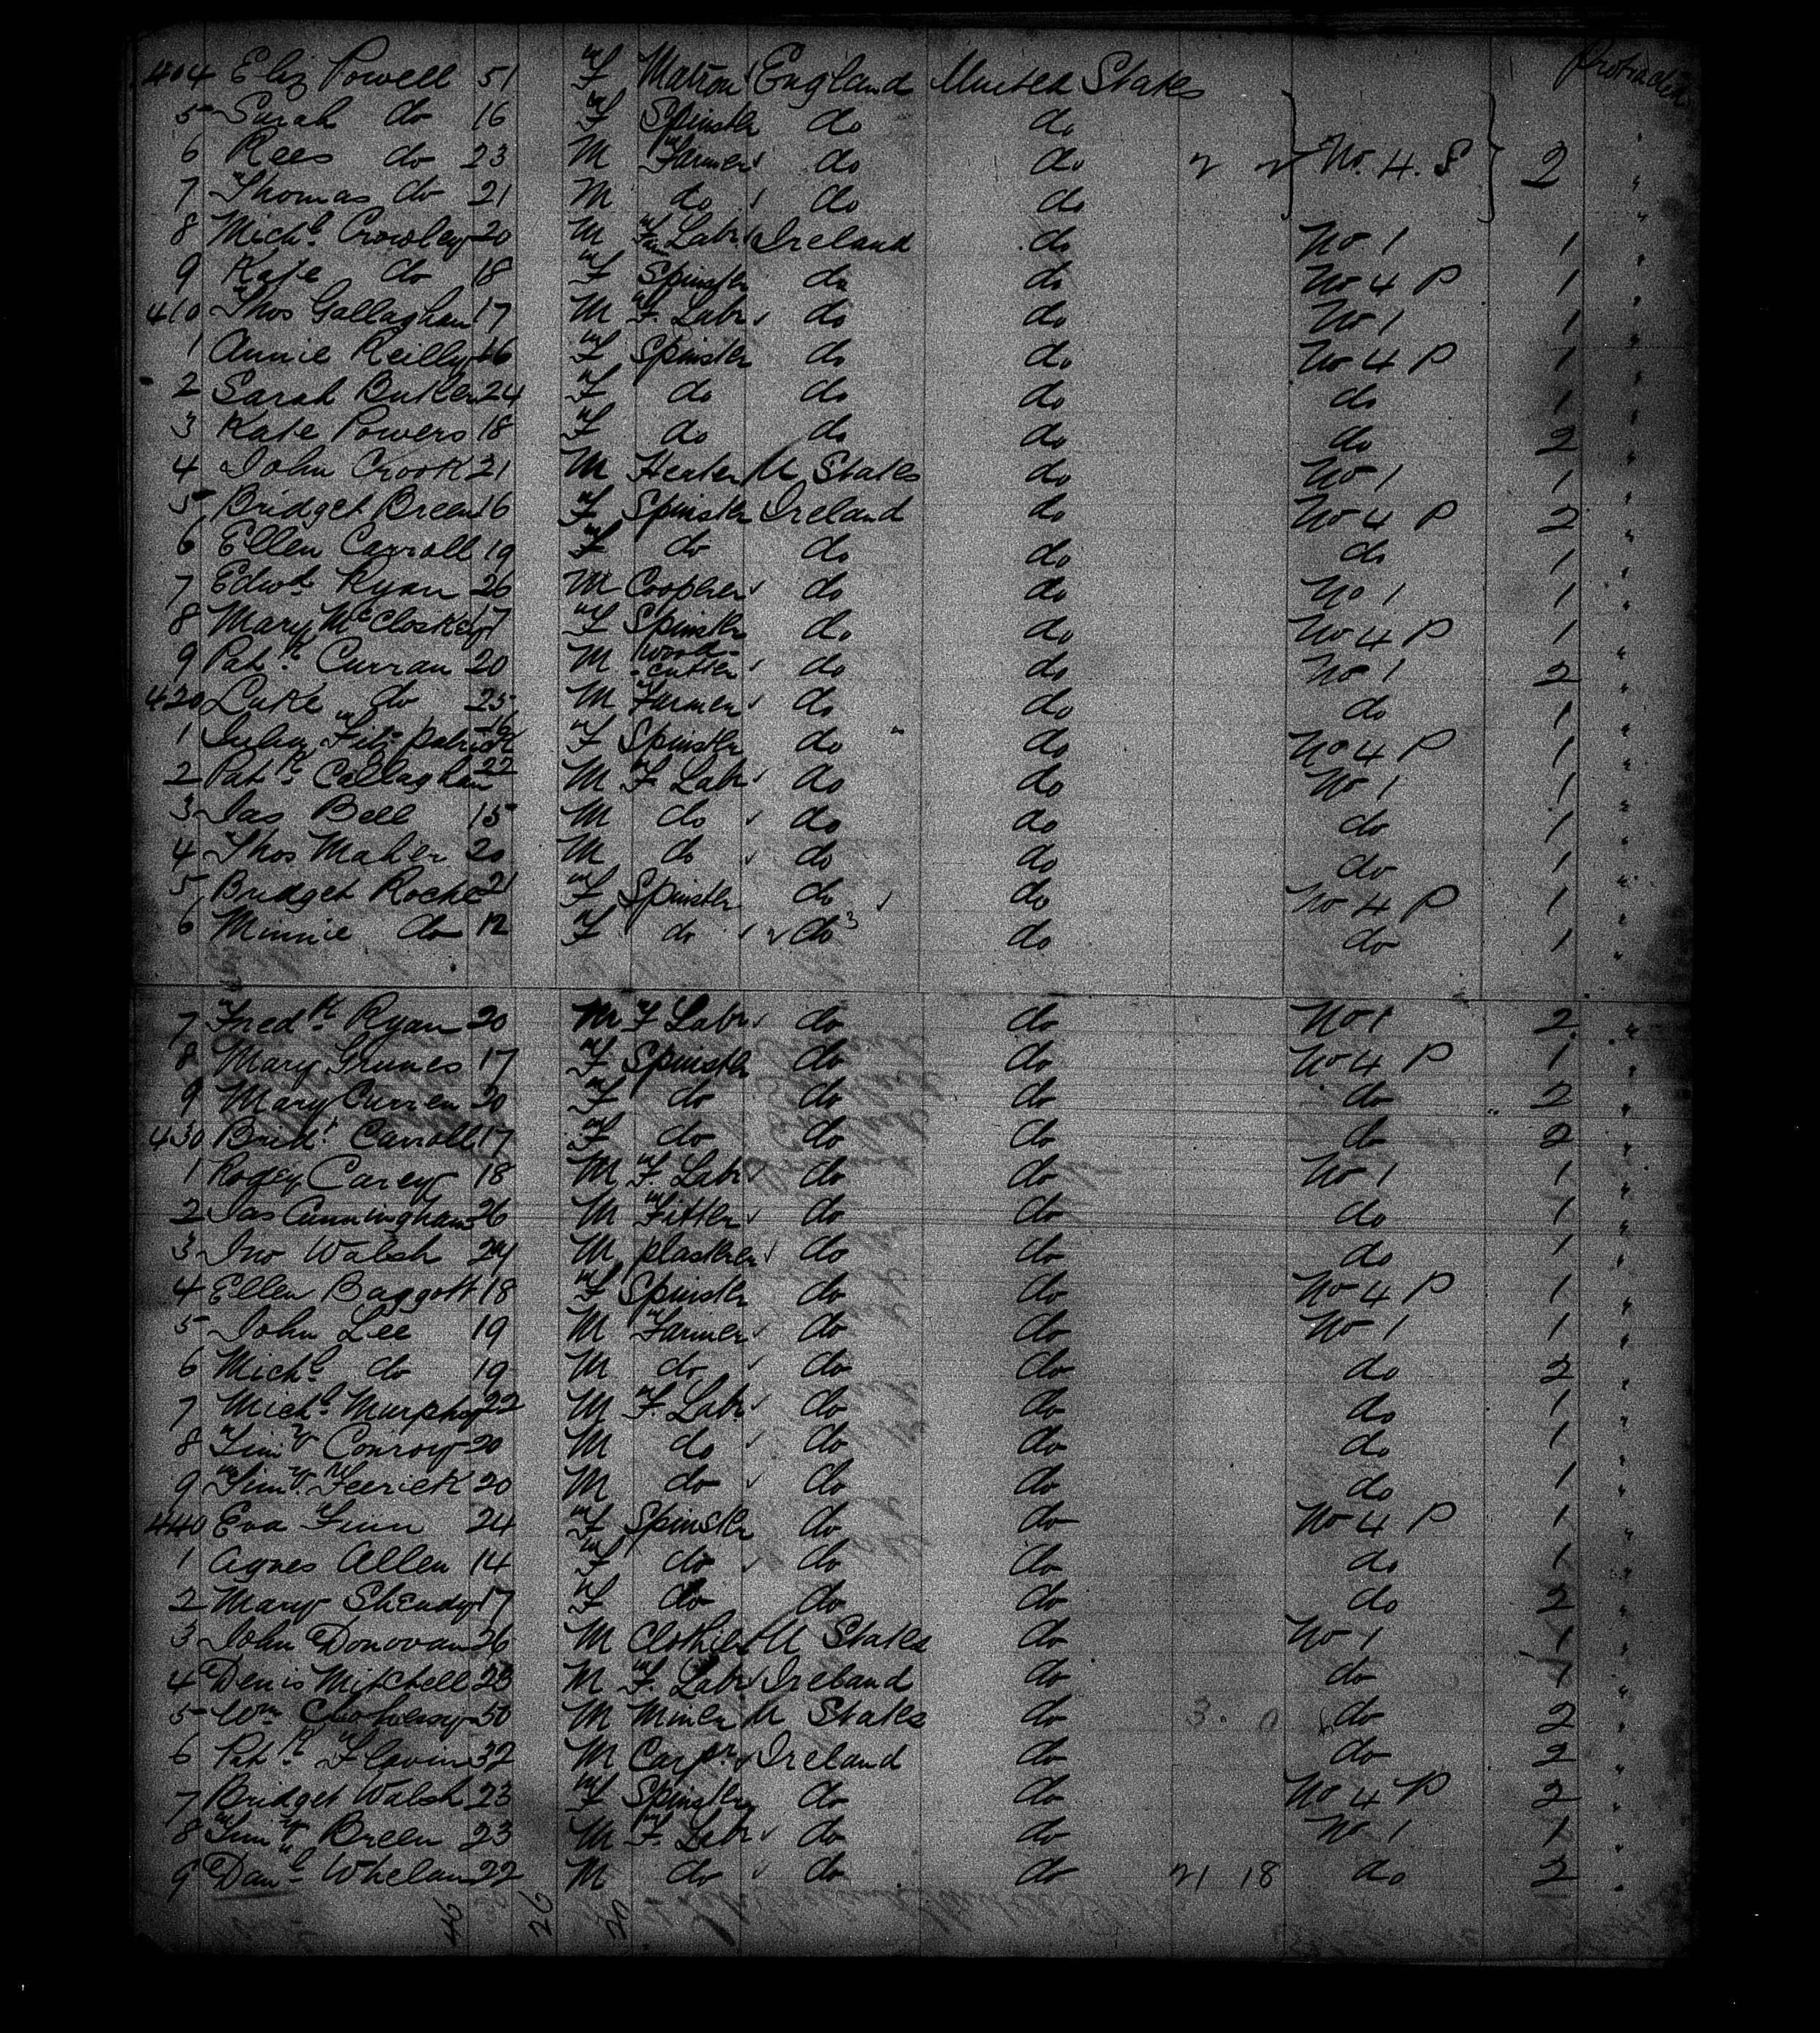 Protracted
404 Eliz Powell 51 F Matron England United States
5 Sarah do 16 F Spinster do do
6 Rees do 23 M Farmer do do No. 4. S 2
7 Thomas do 21 M do do do
8 Michl Crowley 20 M F Labr Ireland do No 1 1
9 Kate do 18 F Spinster do do No 4 P 1
410 Thos Gallaghan 17 M F. Labr do do No 1 1
1 Annie Reilly 16 F Spinster do do No 4 P 1
2 Sarah Butler 24 F do do do do 1
3 Kate Powers 18 F do do do do 2
4 John Crook 21 M Heater U States do No 1 1
5 Bridget Breen 16 F Spinster Ireland do No 4 P 2
6 Ellen Carroll 19 F do do do do 1
7 Edwd Ryan 26 M Coopher do do No 1 1
8 Mary McCloskey 17 F Spinster do do No 4 P 1
9 Patk Curran 20 M Wood-cutter do do No 1 2
420 Luke do 25 M Farmer do do do 1
1 Julia Fitzpatrick 16 F Spinster do do No 4 P 1
2 Patk Callaghan 22 M F Labr do do No 1 1
3 Jas Bell 15 M do do do do 1
4 Thos Maher 20 M do do do do 1
5 Bridget Roche 21 F Spinster do do No 4 P 1
6 Minnie do 12 F do do 3 do do 1
7 Fredk Ryan 20 M F Labr do do No 1 2
8 Mary Grunes 17 F Spinster do do No 4 P 1
9 Mary Curren 20 F do do do do 2
430 Bridt Carroll 17 F do do do do 2
1 Rodgy Carey 18 M F. Labr do do No 1 1
2 Jas Cunningham 26 M Fitter do do do 1
3 Jno Walsh 24 M plasterer do do do 1
4 Ellen Baggott 18 F Spinster do do No 4 P 1
5 John Lee 19 M Farmer do do No 1 1
6 Michl do 19 M do do do do 2
7 Michl Murphy 22 M F. Labr do do do 1
8 Timy Conroy 20 M do do do do 1
9 Timy Feerick 20 M do do do do 1
440 Eva Finn 24 F Spinster do do No 4 P 1
1 Agnes Allen 14 F do do do do 1
2 Mary Sheudy 17 F do do do do 2
3 John Donovan 26 M Clothier U States do No 1 1
4 Denis Mitchell 23 M F. Labr Ireland do do 1
5 Wm 50 M Miner U States do 3. 0 do 2
6 Patk Flavin 32 M Carpr Ireland do do 2
7 Bridget Walsh 23 F Spinster do do No 4 P 2
8 Timy Breen 23 M F. Labr do do No 1 1
9 Danl Whelan 22 M do do do 21 18 do 2
46 26 20